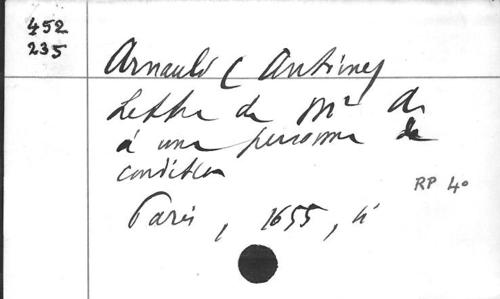 452
235
Arnauld (Antoine)
Lettre de Mr A.
à une personne de
condition
RP 40
Paris, 1655, 4°